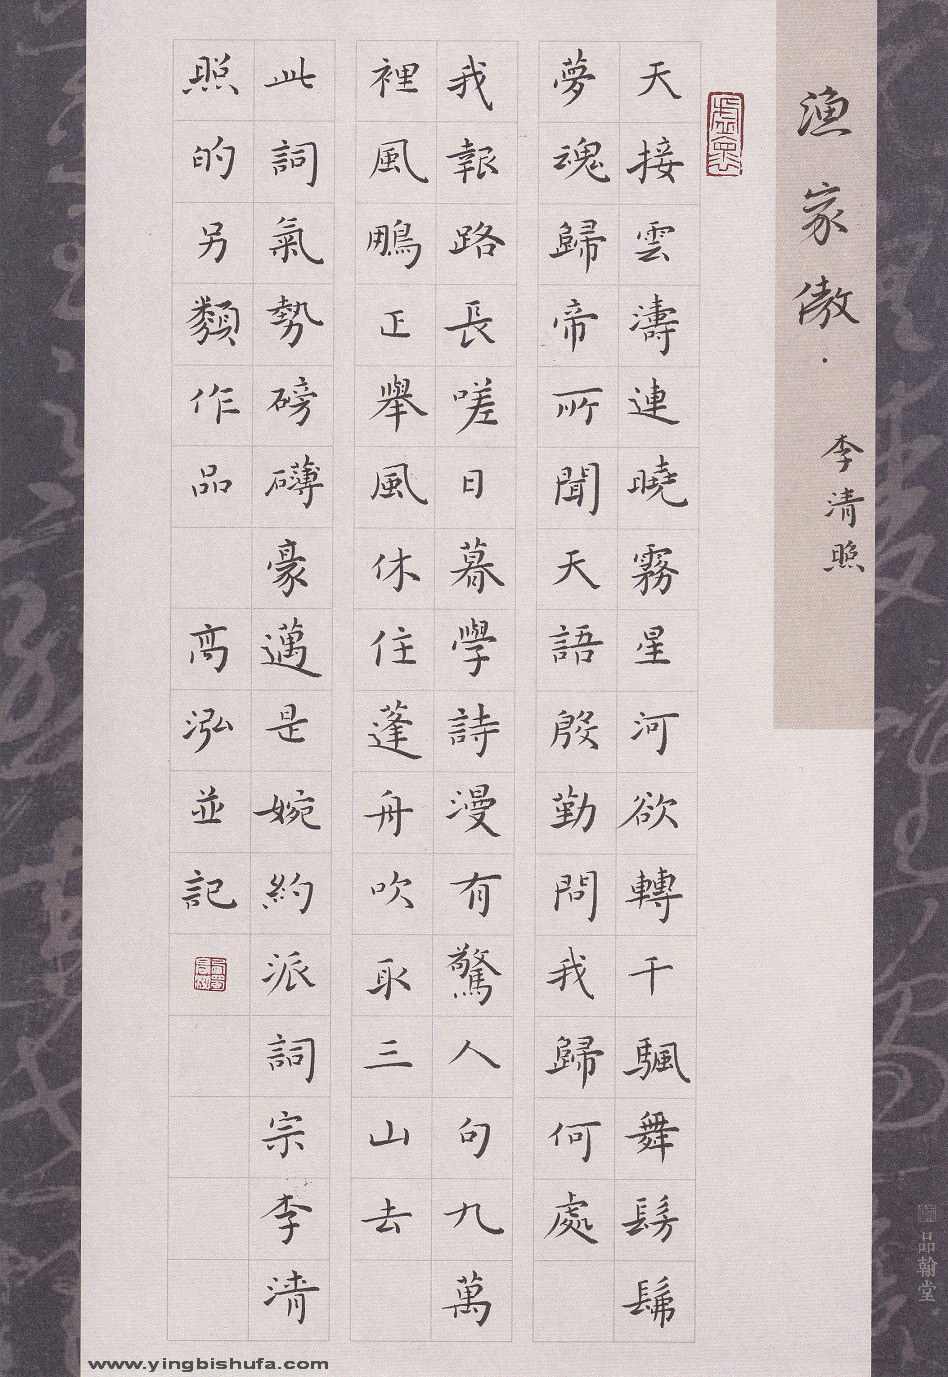 漁家傲·李清照
天接雲濤連曉霧星河欲轉千颿舞髣髴
夢魂歸帝所聞天語殷勤問我歸何處
我報路長嗟日暮學詩漫有驚人句九萬
裡風鵬正舉風休住蓬舟吹取三山去
此詞氣勢磅礴豪邁是婉約派詞宗李清
照的另類作品 高泓並記
品翰堂
www.yingbishufa.com